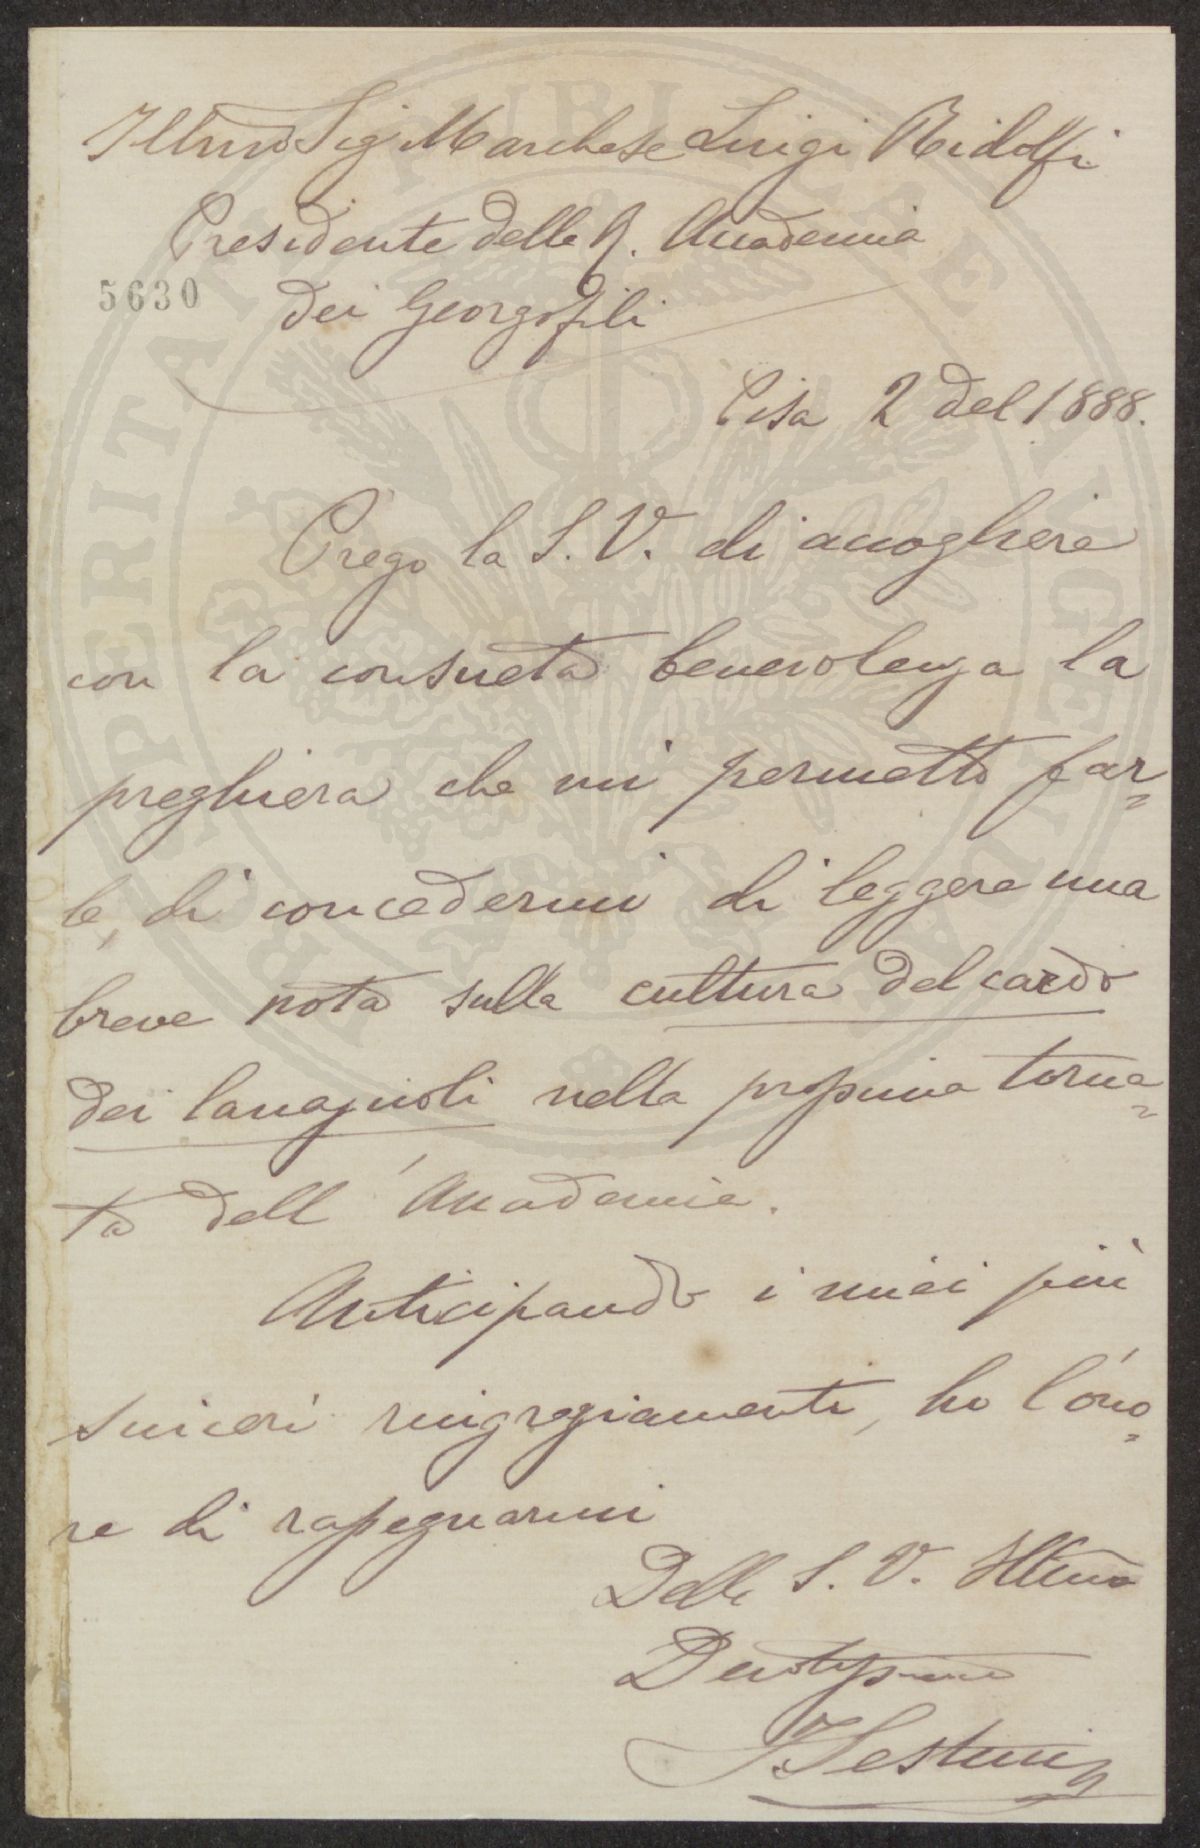 Illmo Sig Marchese Luigi Ridolfi
Presidente della R. Accademia
5630 dei Georgofili
Pisa 2 del 1888.
Prego la S. V. di accogliere
con la consueta benevolenza la
preghiera che mi permetto far=
le, di concedermi di leggere una
breve nota sulla cultura del cardo
dei lanajuoli nella prossima torna=
ta dell'Accademia.
Anticipando i miei più
sinceri ringraziamenti, ho l'ono=
re di rassegnarmi
Della S. V. Illma
Devotissimo